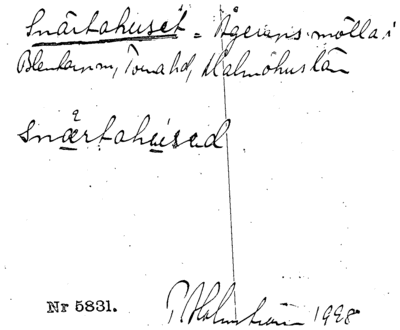 Snärtahuset = Ågerups mölla i
Blentarp, Torna hd, Malmöhus län
snærtahúsəd
Nr 5831.
1928